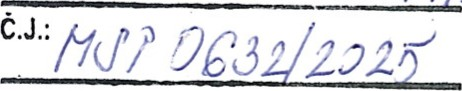 Č.J.: MSP 0632/2025